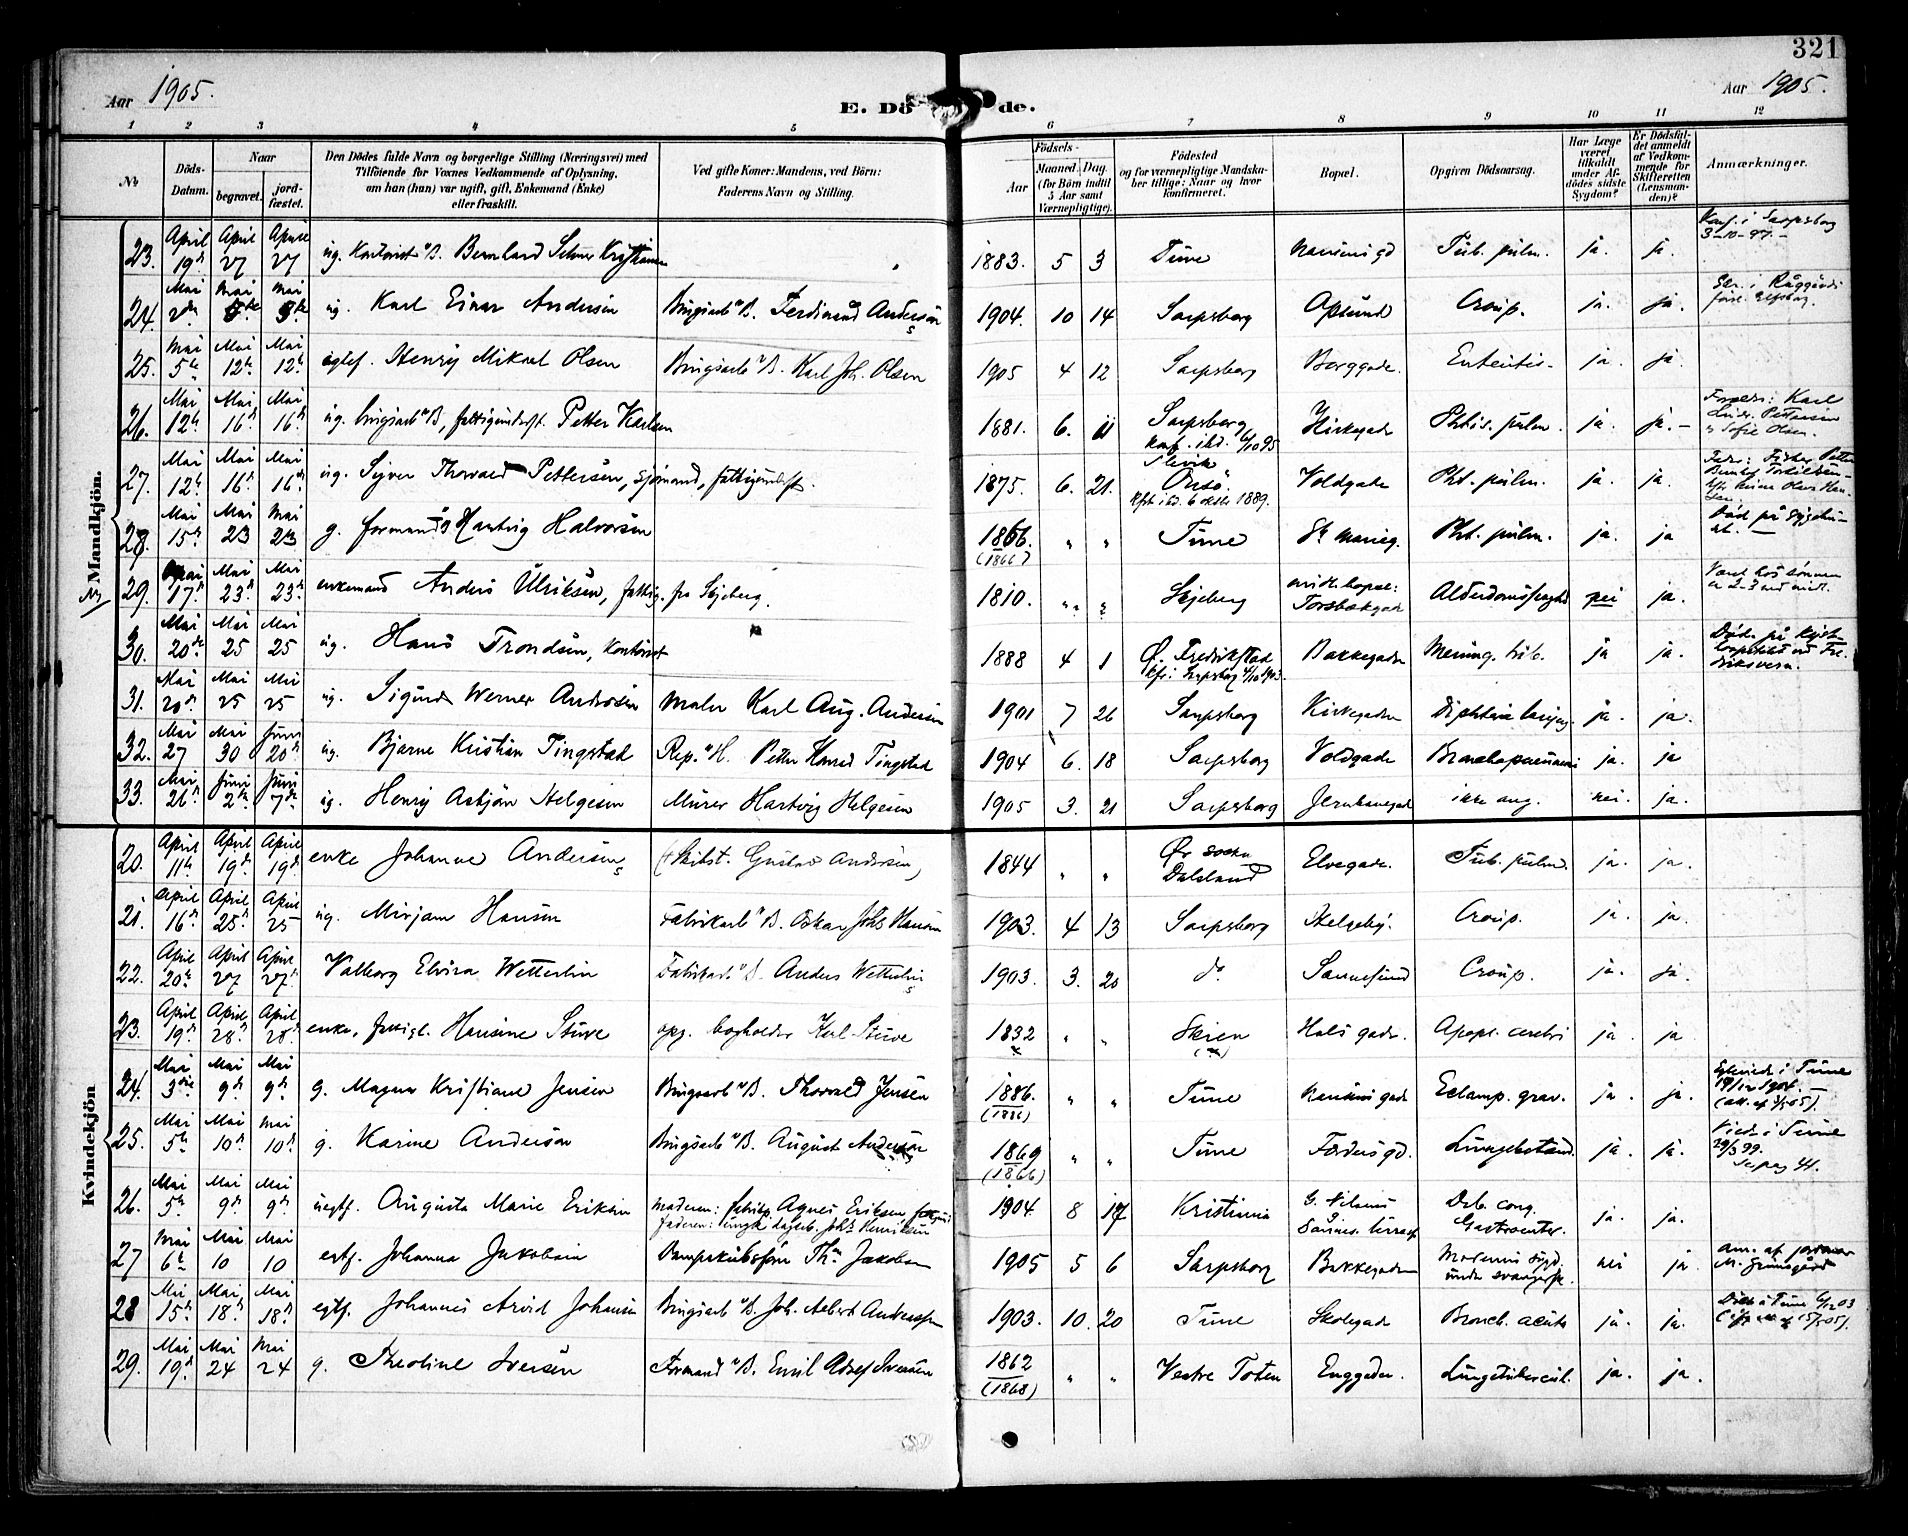 321
Aar 1905.
E. Dö de.
Aar 1905.
1 2 3 4 5 6 7 8 9 10 11 12
No
Döds-Datum.
Naar
begravet.
jord-fæstet.
Den Dödes fulde Navn og borgerlige Stilling (Næringsvei) med
Tilföiende for Voxnes Vedkommende af Oplysning,
om han (hun) var ugift, gift, Enkemand (Enke)
eller fraskilt.
Ved gifte Koner: Mandens, ved Börn:
Faderens Navn og Stilling.
Födsels-
Aar
Maaned. Dag.
(for Börn indtil
5 Aar samt
Værnepligtige).
Födested
og for værnepligtige Mandska-
ber tillige: Naar og hvor
konfirmeret.
Bopæl.
Opgiven Dödsaarsag.
Har Læge
været
tilkaldt
under Af-
dödes sidste
Sygdom?
Er Dödsfal-
det anmeldt
af Vedkom-
mende for
Skifteretten
(Lensman-
den)?
Anmærkninger.
Mandkjön.
23. April 19d April 27 April 27 ug. Kontorist B. Bernhard 1883. 5 3 Tune gd Tub. pulm. ja. ja. Konf. i Sarpsborg 3-10-97.
24. Mai 2den Mai Mai ug. Karl Einar Andersen Brugsarb. B. Ferdinand Andersen 1904. 10 14 Sarpsborg Opsund Croup. ja. ja.
25. Mai 5te Mai 12te Mai 12te egtef. Henry Mikael Olsen Brugsarb. B. Karl Joh. Olsen 1905 4 12 Sarpsborg Borggade. Enteritis. ja. ja.
26. Mai 12te Mai 16d Mai 16d ug. brugsarb. B, fattigunderst. Petter Karlsen 1881. 6. 11 Sarpsborg konf. ibd. 6/10 95 Kirkegade Phtis. pulm. ja. ja. Karl Pettersen Sofie Olsen.
27. Mai 12te Mai 16d Mai 16de ug. Sigvor Thorvald Pettersen, sjömand, fattigunderst. 1875. 6. 21. Slevik Onsö. Kfrt ibd. 6 oktbr 1889. Voldgade Pht. pulm. ja. ja.
28. Mai 15d Mai 23 Mai 23 g. formand Hartvig Halvorsen 1866. (1866) " " Tune St. Marieg. Pht. pulm. ja. ja Död på sygehu-
29. Mai 17d Mai 23d Mai 23de enkemand Anders Ulriksen, fattig. fra Skjeberg. 1810. " " Skjeberg midl. bopæl: Torsbækgade Alderdomssvaghed nei ja.
30. Mai 20de Mai 25 Mai 25 ug. Hans Trondsen, Kontorist 1888 4 1 Ø. Fredrikstad Kfr. i Sarpsborg 4/10 1903. Bakkegaden Mening. tub. ja ja. Död på Kyst-hospitalet ved Fre-driksvern.
31. Mai 20d Mai 25 Mai 25 ug. Sigurd Werner Andersen Maler Karl Aug. Andersen 1901 7 26 Sarpsborg Kirkegaden Diphteria laryng. ja. ja.
32. Mai 27 Mai 30 Juni 20d ug. Bjarne Kristian Tingstad Rep. H. Petter Konrad Tingstad 1904 6. 18 Sarpsborg Voldgade Bronchopneumoni ja. ja
33. Mai 26d Juni 2den Juni 7de ug. Henry Asbjörn Helgesen Murer Hartvig Helgesen 1905 3. 21 Sarpsborg Jernbanegade ikke ang. nei. ja.
Kvindekjön
20. April 11te April 19d April 19d enke Johanne Andersen († Skibst. Gustav Andersen) 1844 " " Ør socken Dalsland Elvegade. Tub. pulm. ja. ja.
21. April 16d April 25d April 25 ug. Mirjam Hansen Fabrikarb. B. Oskar Johs Hansen 1903. 4 13 Sarpsborg Helgeby. Croup. ja. ja.
22. April 20de April 27 April 27d Valborg Elvira Wetterlin Fabrikarb. B. Anders Wetterlin 1903. 3. 20 do. Sannesund Croup. ja. ja.
23. April 19d April 28d April 28d enke, fattigl. Hansine Stuve opg. bogholder Karl Stuve 1832 " " Skien Hals gade. Apopl. cerebri ja ja
24. Mai 3die Mai 9d Mai 9d g. Magna Kristiane Jensen Brugsarb. B. Thorvald Jensen 1886. (1886) " " Tune gade Eclamp. grav. ja. ja. Egteviede i Tune
25. Mai 5te Mai 10d Mai 10d g. Karine Andersen Brugsarb. B. August Andersen 1869 (1866) " " Tune gd. Lungebetænd. ja. ja. Vied i Tune 99.
26. Mai 5te Mai 9d Mai 9d uegtf. Augusta Marie Eriksen moderen: fabrikp. Agnes Eriksen faderen: ungk. dagarb. Johs Henriksen 1904. 8 17 Kristiania G. Nilsens Deb. cong. Gastroenter. ja. ja.
27 Mai 6te Mai 10 Mai 10 egtf. Johanna Jakobsen Thn Jakobsen 1905 5 6 Sarpsborg Bakkegaden Moderens sygd. under svangersk. nei ja anm. af jordmor M.
28 Mai 15d Mai 18d Mai 18d egtf. Johannes Arvid Johansen Brugsarb. B. Joh. Albert Andreassen 1903. 10. 20 Tune Skolegade Bronch. acuta ja. ja. Döbt i Tune 6/12 03
29. Mai 19d Mai 24 Mai 24 g. Theoline Iversen Formand B. Emil Adolf Iversen 1862 (1868) " " Vestre Toten Enggaden. Lungetuberkul. ja. ja.